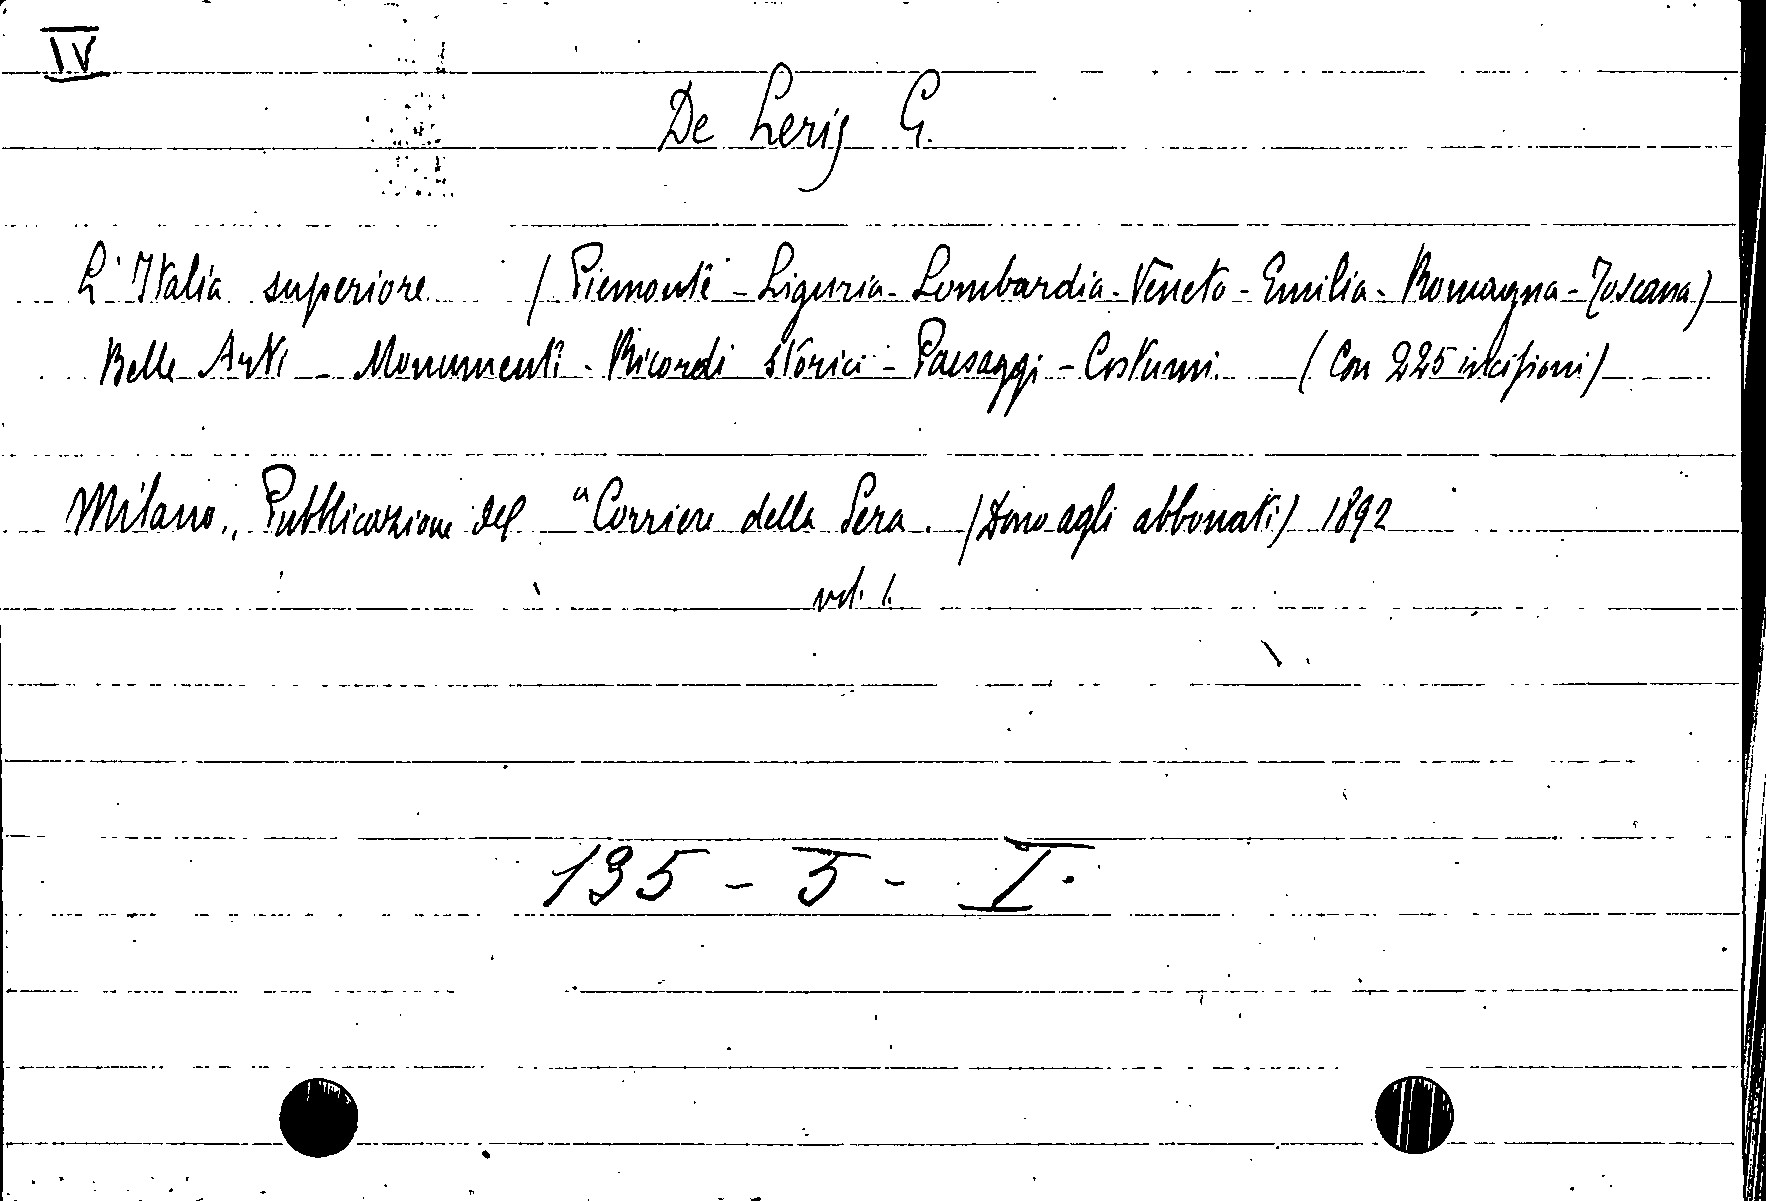 IV
De Leris G.
L'Italia superiore (Piemonte - Liguria - Lombardia - Veneto - Emilia - Romagna - Toscana)
Belle Arti - Monumenti - Ricordi storici - Paesaggi - Costumi. (Con 225 incisioni)
Milano, Pubblicazione del "Corriere della Sera. (Dono agli abbonati) 1892
vol. 1.
135 - 5 - I.